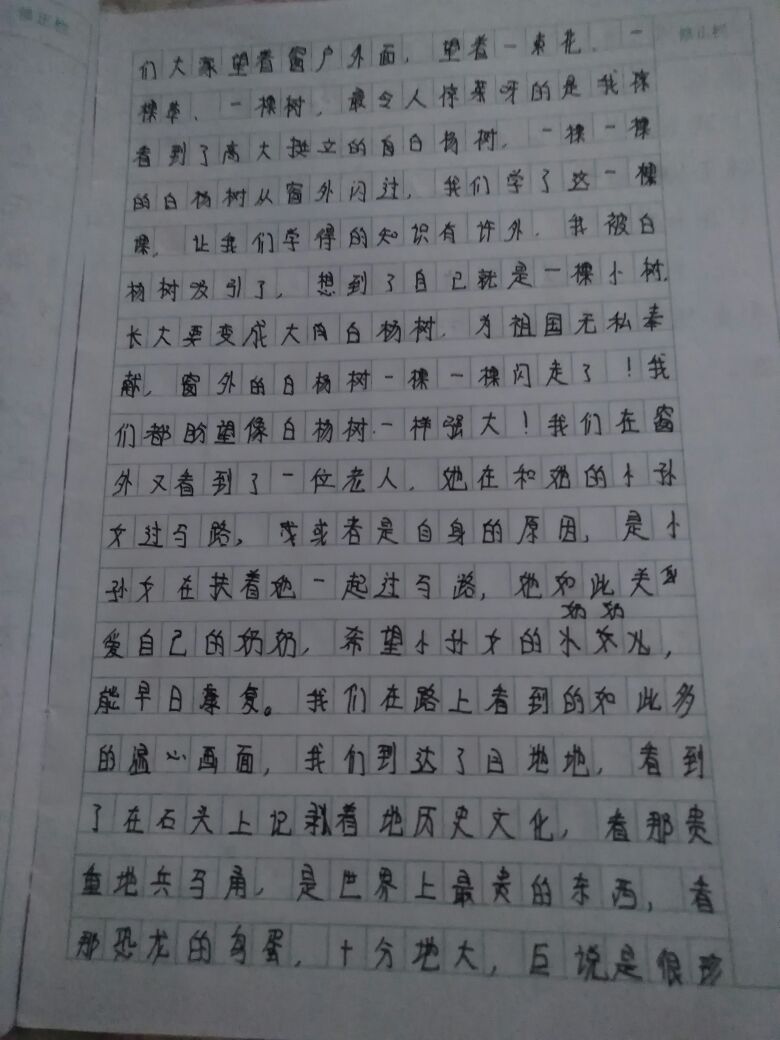 修正栏
修正栏
们大家望着窗户外面，望着一束花、一
棵草、一棵树，最令人惊呀的是我
看到了高大挺立的白杨树，一棵一棵
的白杨树从窗外闪过，我们学了这一棵
让我们学得的知识有许外，我被白
杨树吸引了，想到了自己就是一棵小树，
长大要变成大白杨树，为祖国无私奉
献，窗外的白杨树一棵一棵闪走了！我
们都盼望像白杨树一样强大！我们在窗
外又看到了一位老人，她在和她的小孙
女过马路，或者是自身的原因，是小
孙女在扶着她一起过马路，她如此关
爱自己的奶奶，希望小孙女的奶奶，
能早日康复。我们在路上看到的如此多
的温心画面，我们到达了目地地，看到
了在石头上记刻着地历史文化，看那贵
重地兵马甬，是世界上最贵的东西，看
那恐龙的鸟蛋，十分地大，巨说是很珍